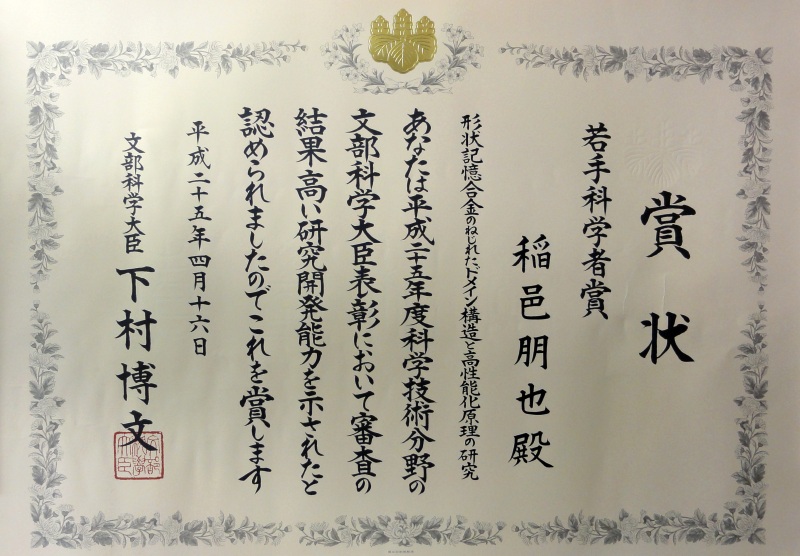 賞状
若手科学者賞
稲邑朋也殿
形状記憶合金のねじれたドメイン構造と高性能化原理の研究
あなたは平成二十五年度科学技術分野の
文部科学大臣表彰において審査の
結果高い研究開発能力を示されたと
認められましたのでこれを賞します
平成二十五年四月十六日
文部科学大臣 下村博文